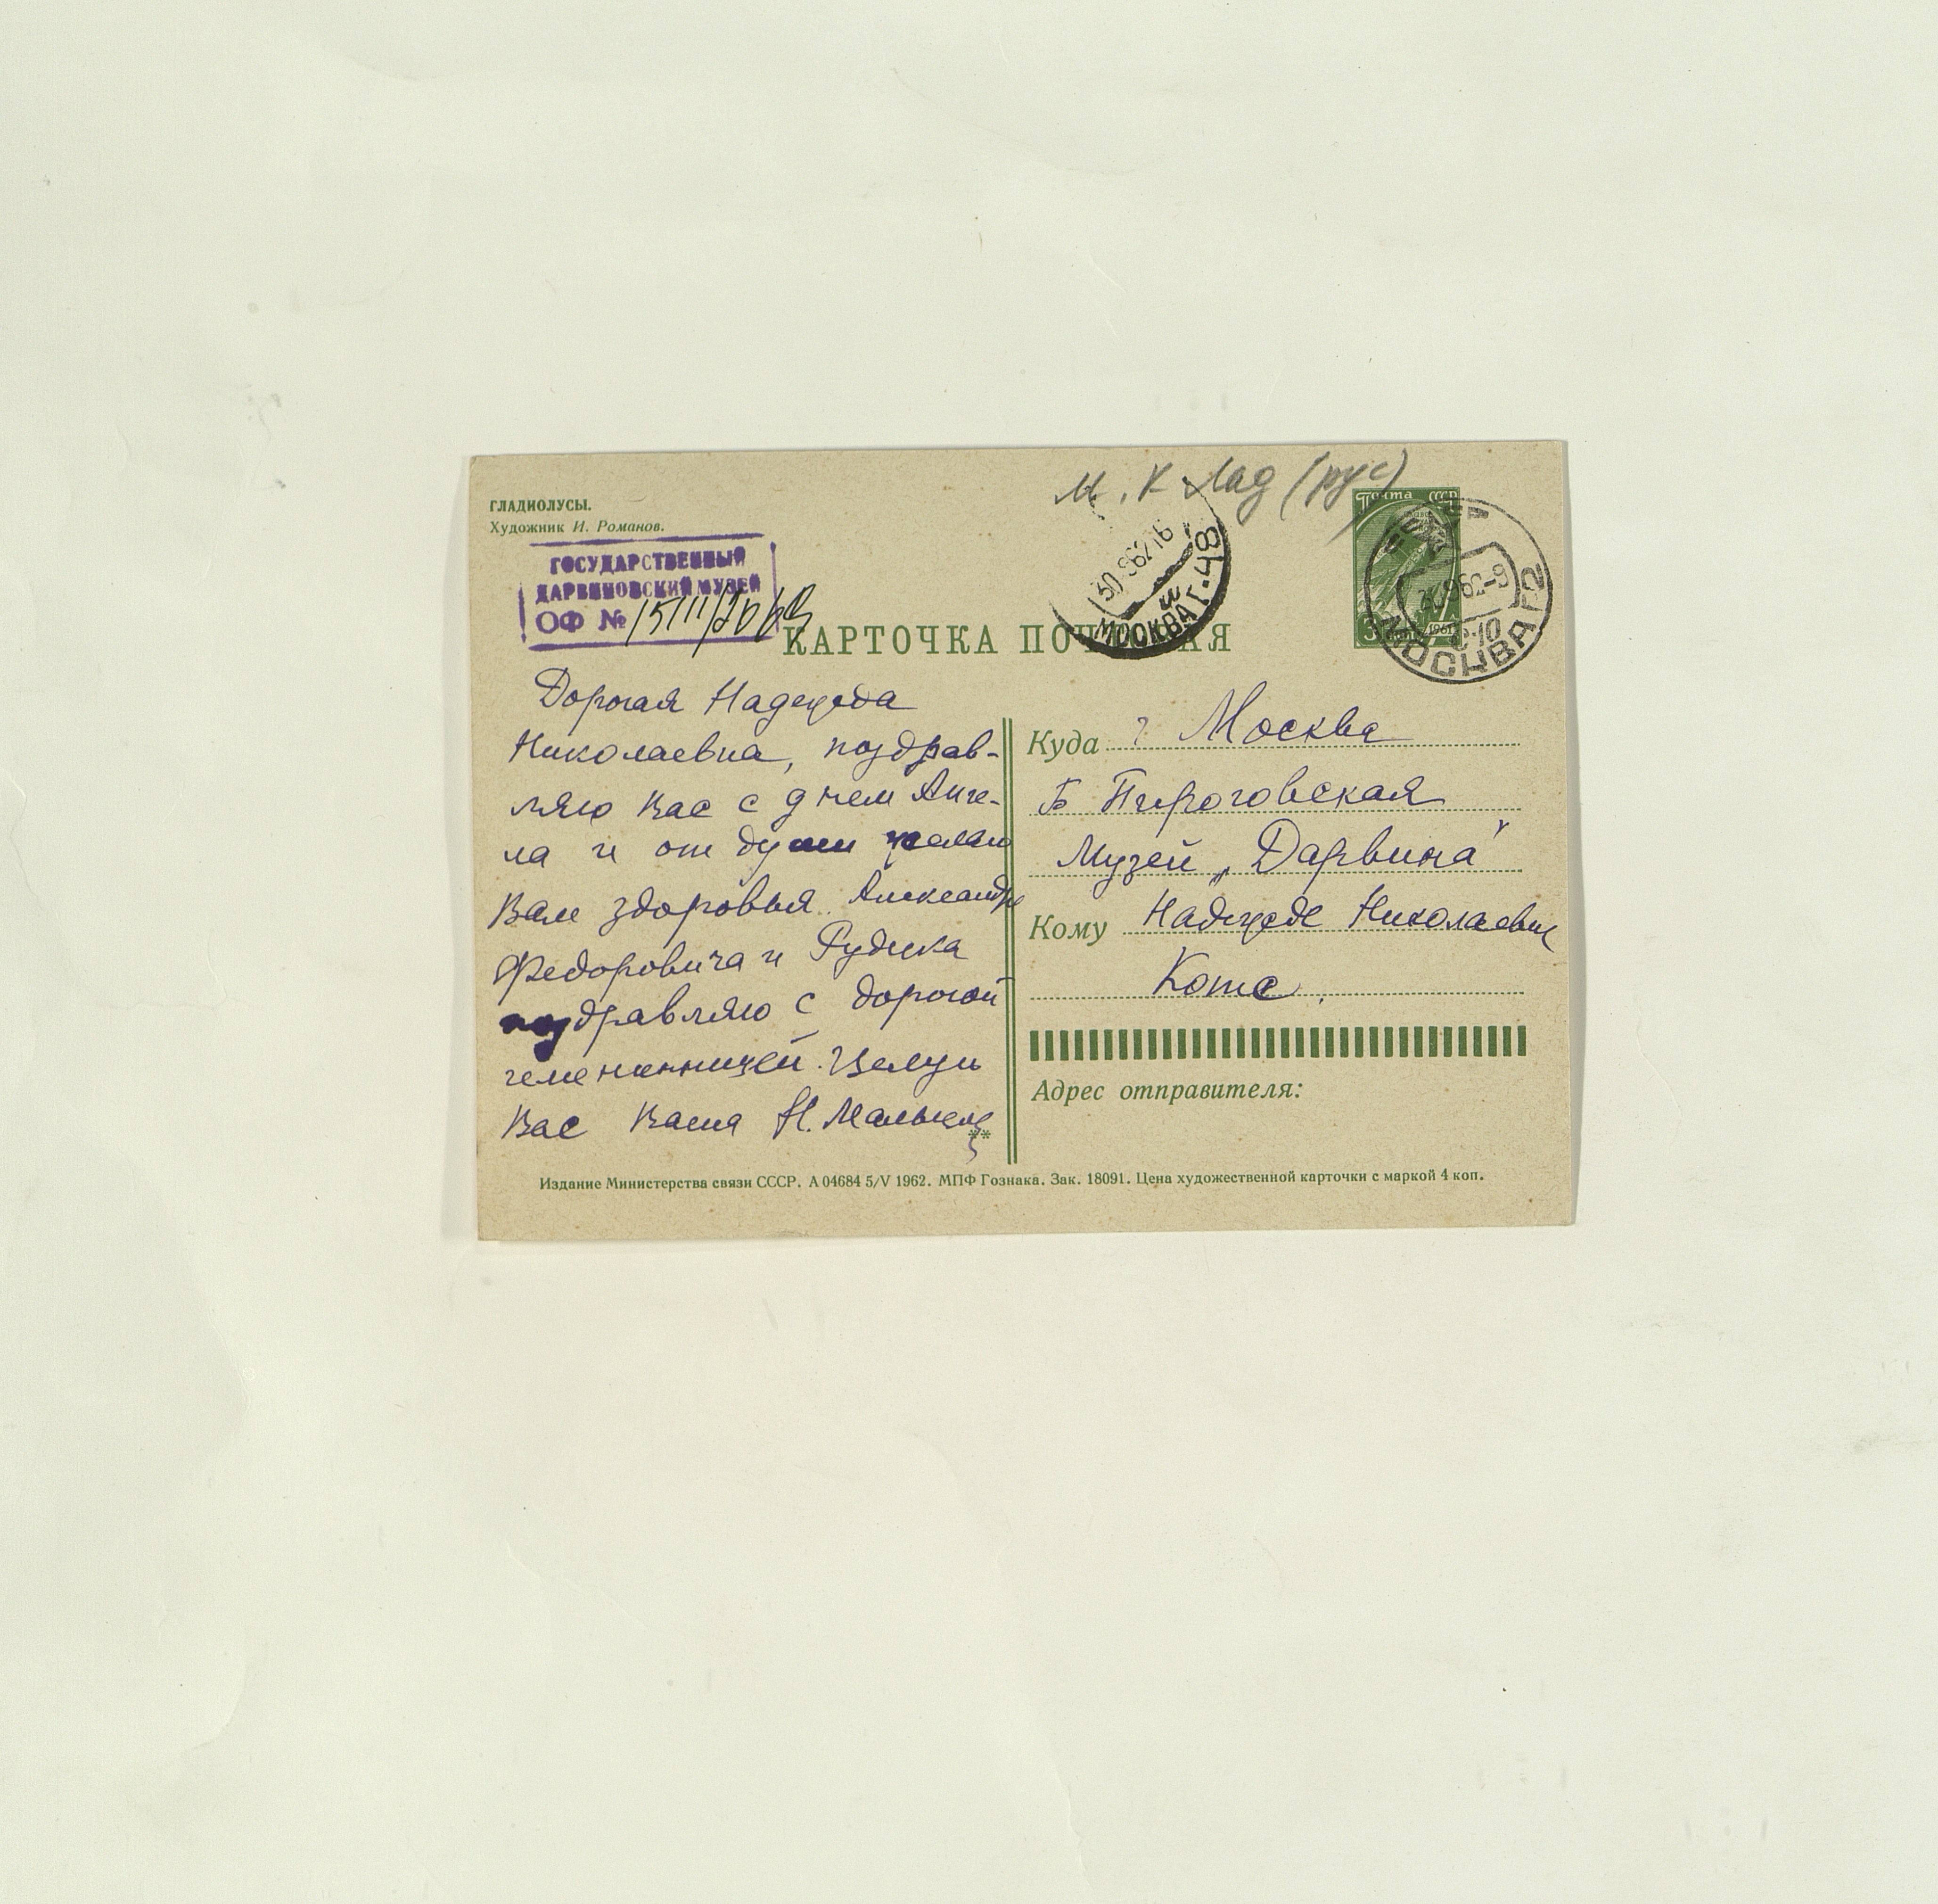 М. К Лад (рус)
ГЛАДИОЛУСЫ.
Художник И. Романов.
ГОСУДАРСТВЕННЫЙ
ДАРВИНОВСКИЙ МУЗЕЙ
ОФ №
Почта СССР
1961
МОСКВА Г-48
МОСКВА Г-2
КАРТОЧКА ПОЧТОВАЯ
Дорогая Надежда
Николаевна, поздрав-
ляю Вас с днем Анге-
ла и от души желаю
Вам здоровья. Александра
Федоровича и Рудика
поздравляю с дорогой
именинницей. Целую
Вас Ваша Н.
Куда г Москва
Б Пироговская
Музей „Дарвина"
Кому Надежде Николаевне
Котс.
Адрес отправителя:
Издание Министерства связи СССР. А 04684 5/V 1962. МПФ Гознака. Зак. 18091. Цена художественной карточки с маркой 4 коп.